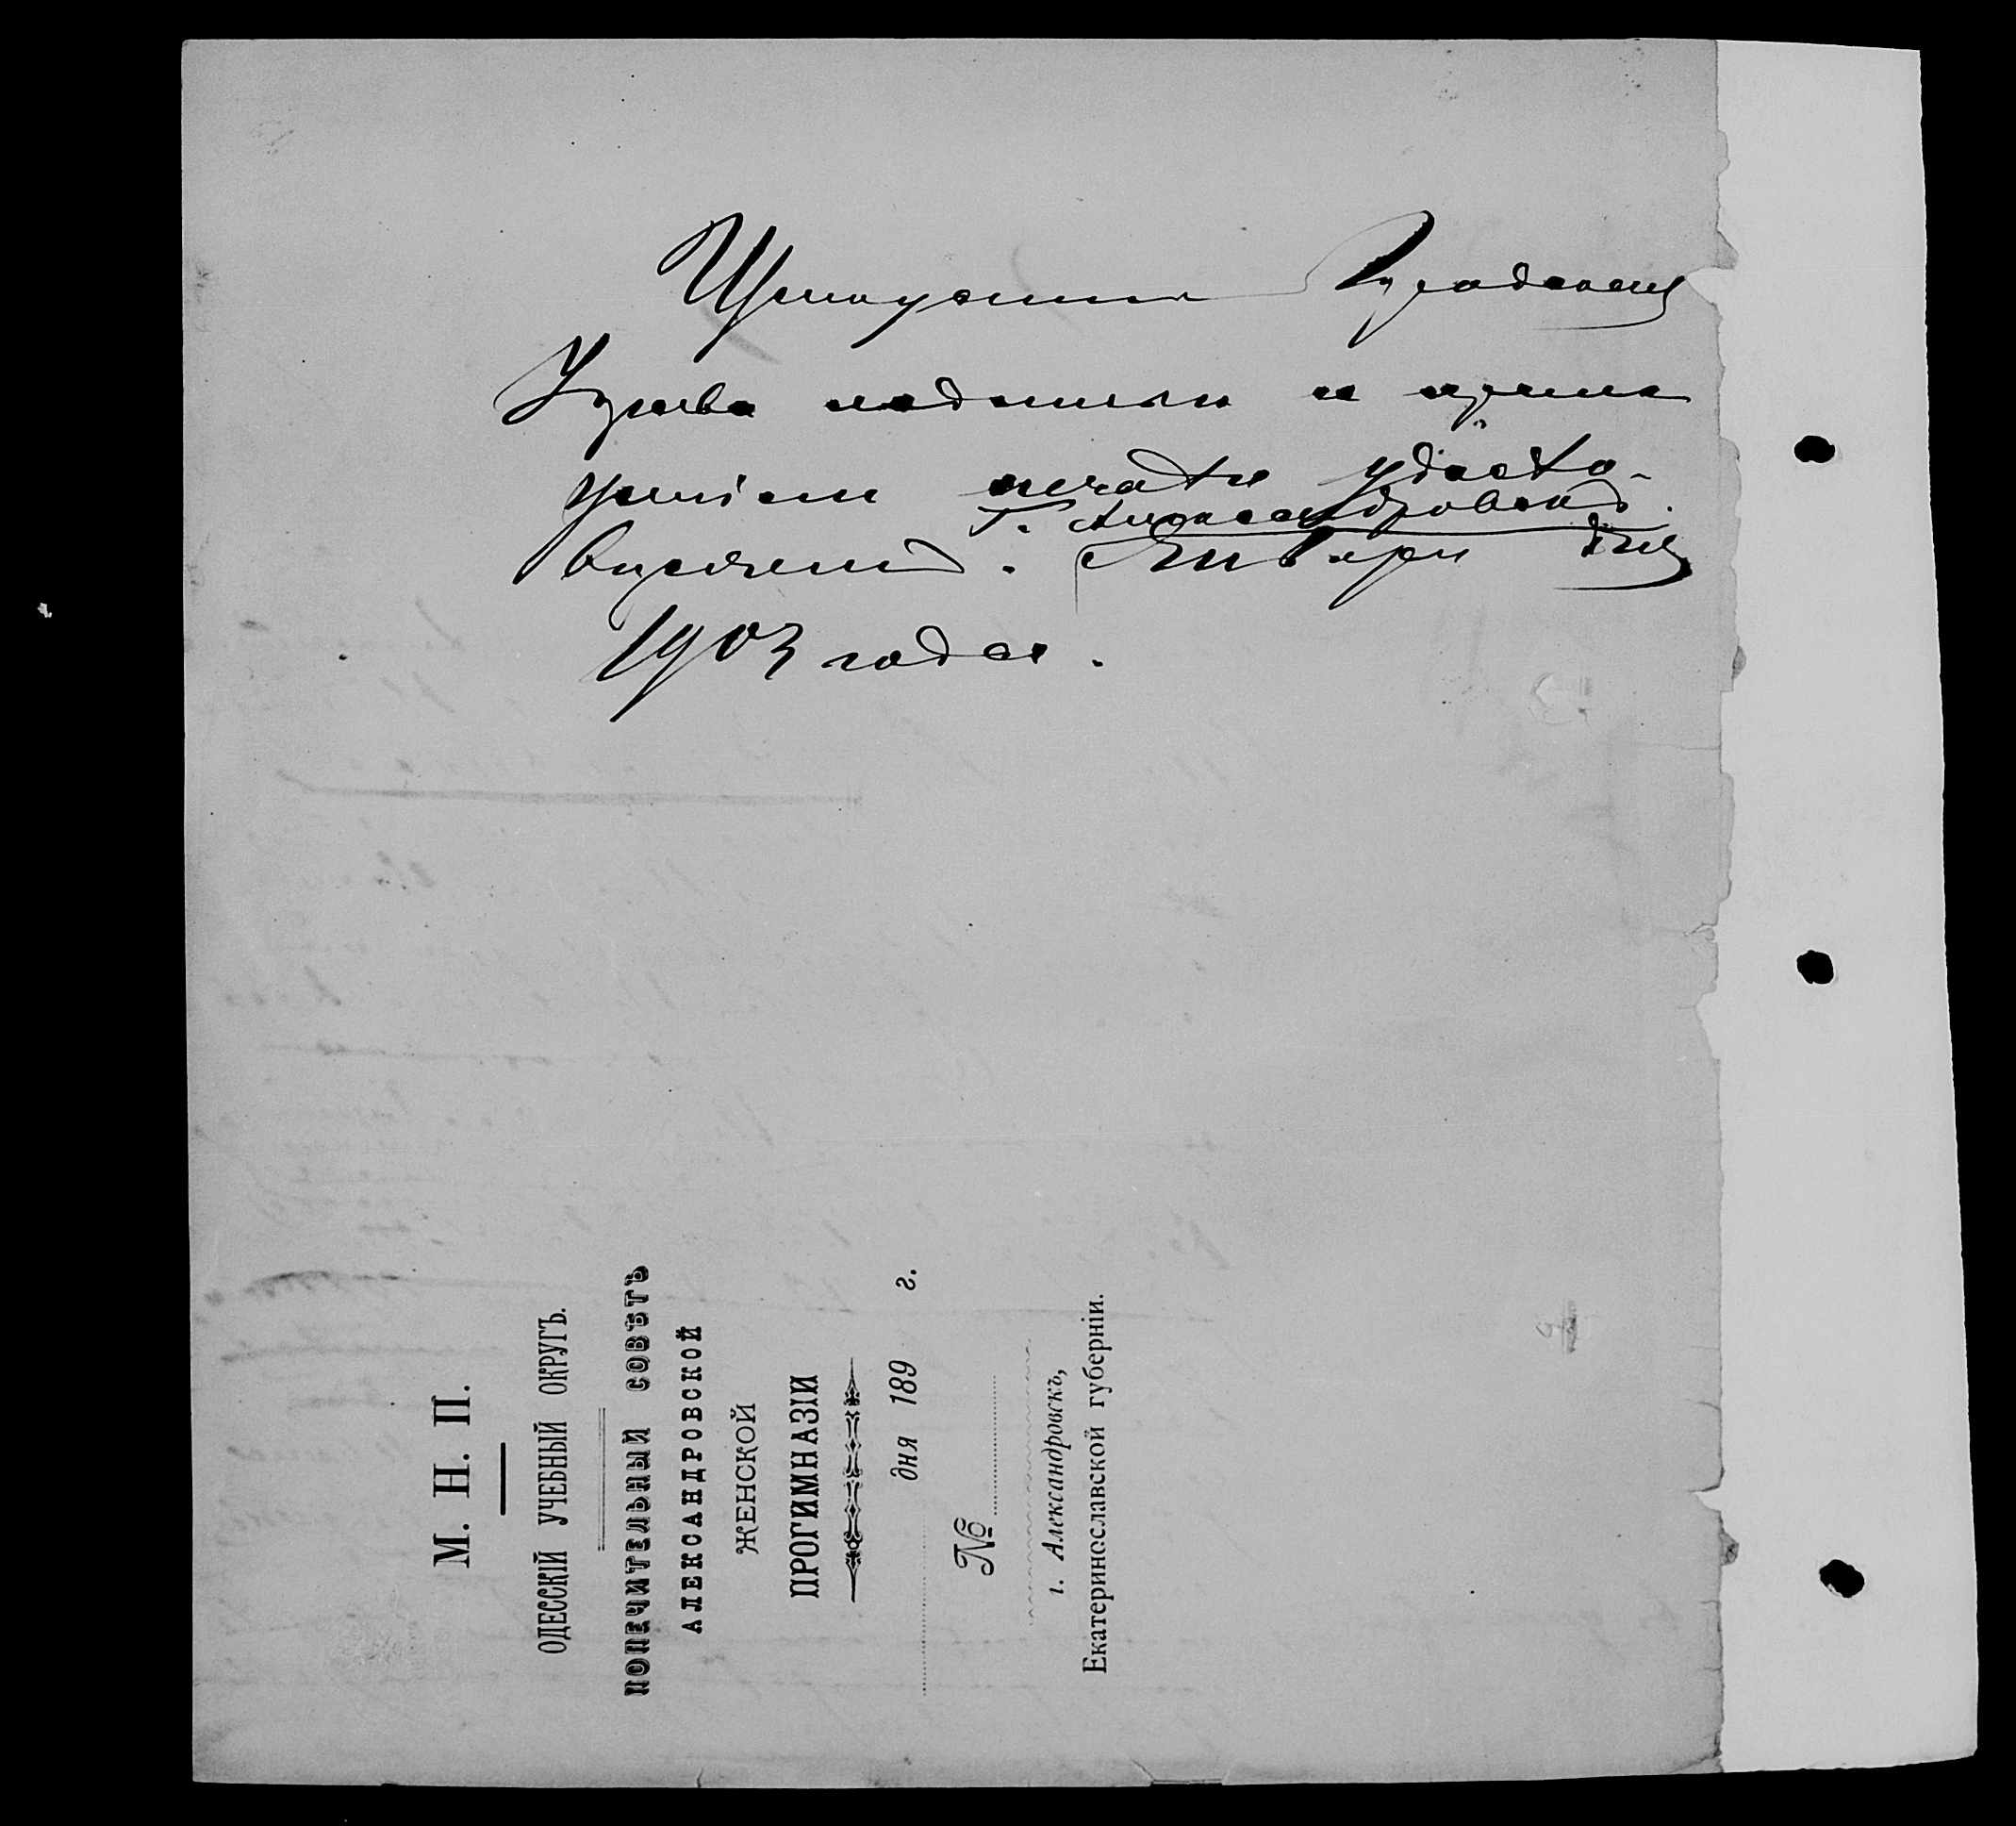 Городской
Управа подписью и прило-
женіем печати удосто-
г. Александровскъ.
веряетъ. Января дня
1903 года.
М. Н. П.
ОДЕССКІЙ УЧЕБНЫЙ ОКРУГЪ.
ПОПЕЧИТЕЛЬНЫЙ СОВѢТЪ
АЛЕКСАНДРОВСКОЙ
ЖЕНСКОЙ
ПРОГИМНАЗІИ
дня 189 г.
№
г. Александровскъ,
Екатеринославской губерніи.